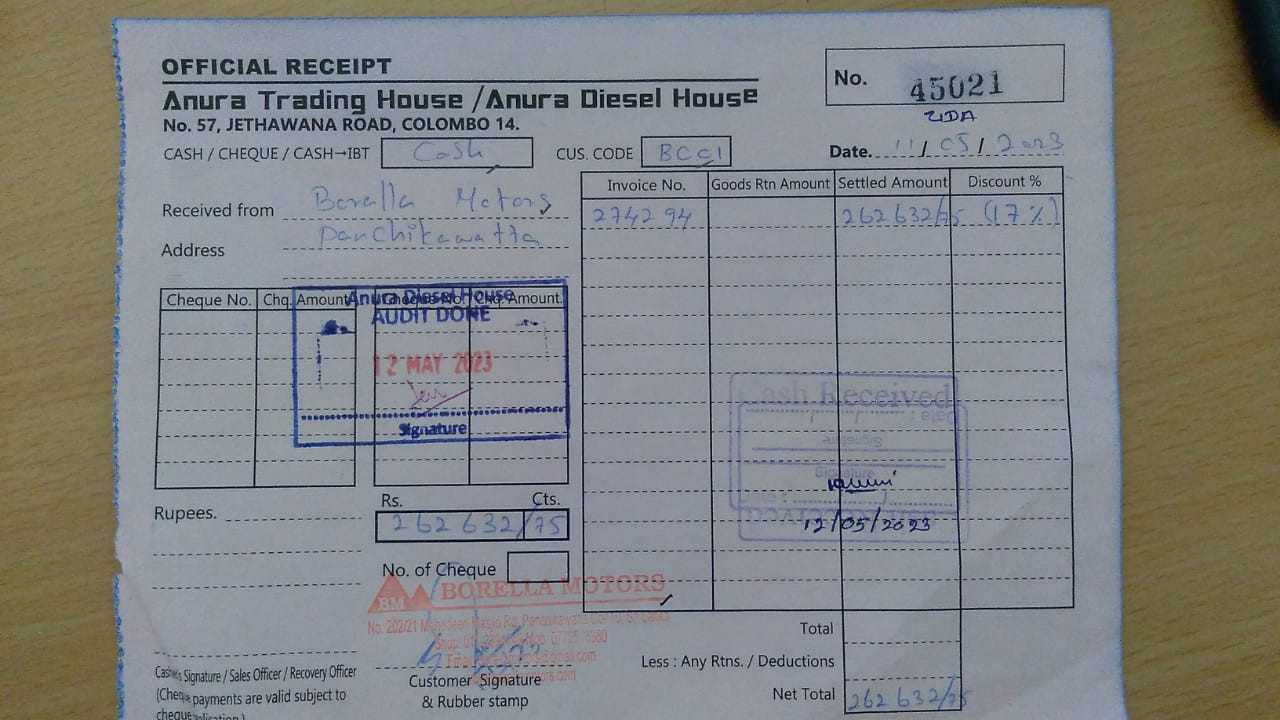 OFFICIAL RECEIPT
Anura Trading House /Anura Diesel House
No. 57, JETHAWANA ROAD, COLOMBO 14.
No. 45021
CASH / CHEQUE / CASH→IBT Cash
CUS. CODE BCC1
Date. 11/05/2023
Received from Borella Motors
Address Panchikawatta
Invoice No. Goods Rtn Amount Settled Amount Discount %
274294 262 632/75 (17%)
Cheque No. Chq. Amount Cheque No. Chq. Amount
Anura Diesel House
AUDIT DONE
12 MAY 2023
Signature
Cash Received
Signature
12/05/2023
Rupees.
Rs. Cts.
262 632/75
No. of Cheque
BM BORELLA MOTORS
No. 202/21
Total
Less : Any Rtns. / Deductions
Net Total 262 632/75
Customer Signature
& Rubber stamp
Signature / Sales Officer / Recovery Officer
payments are valid subject to